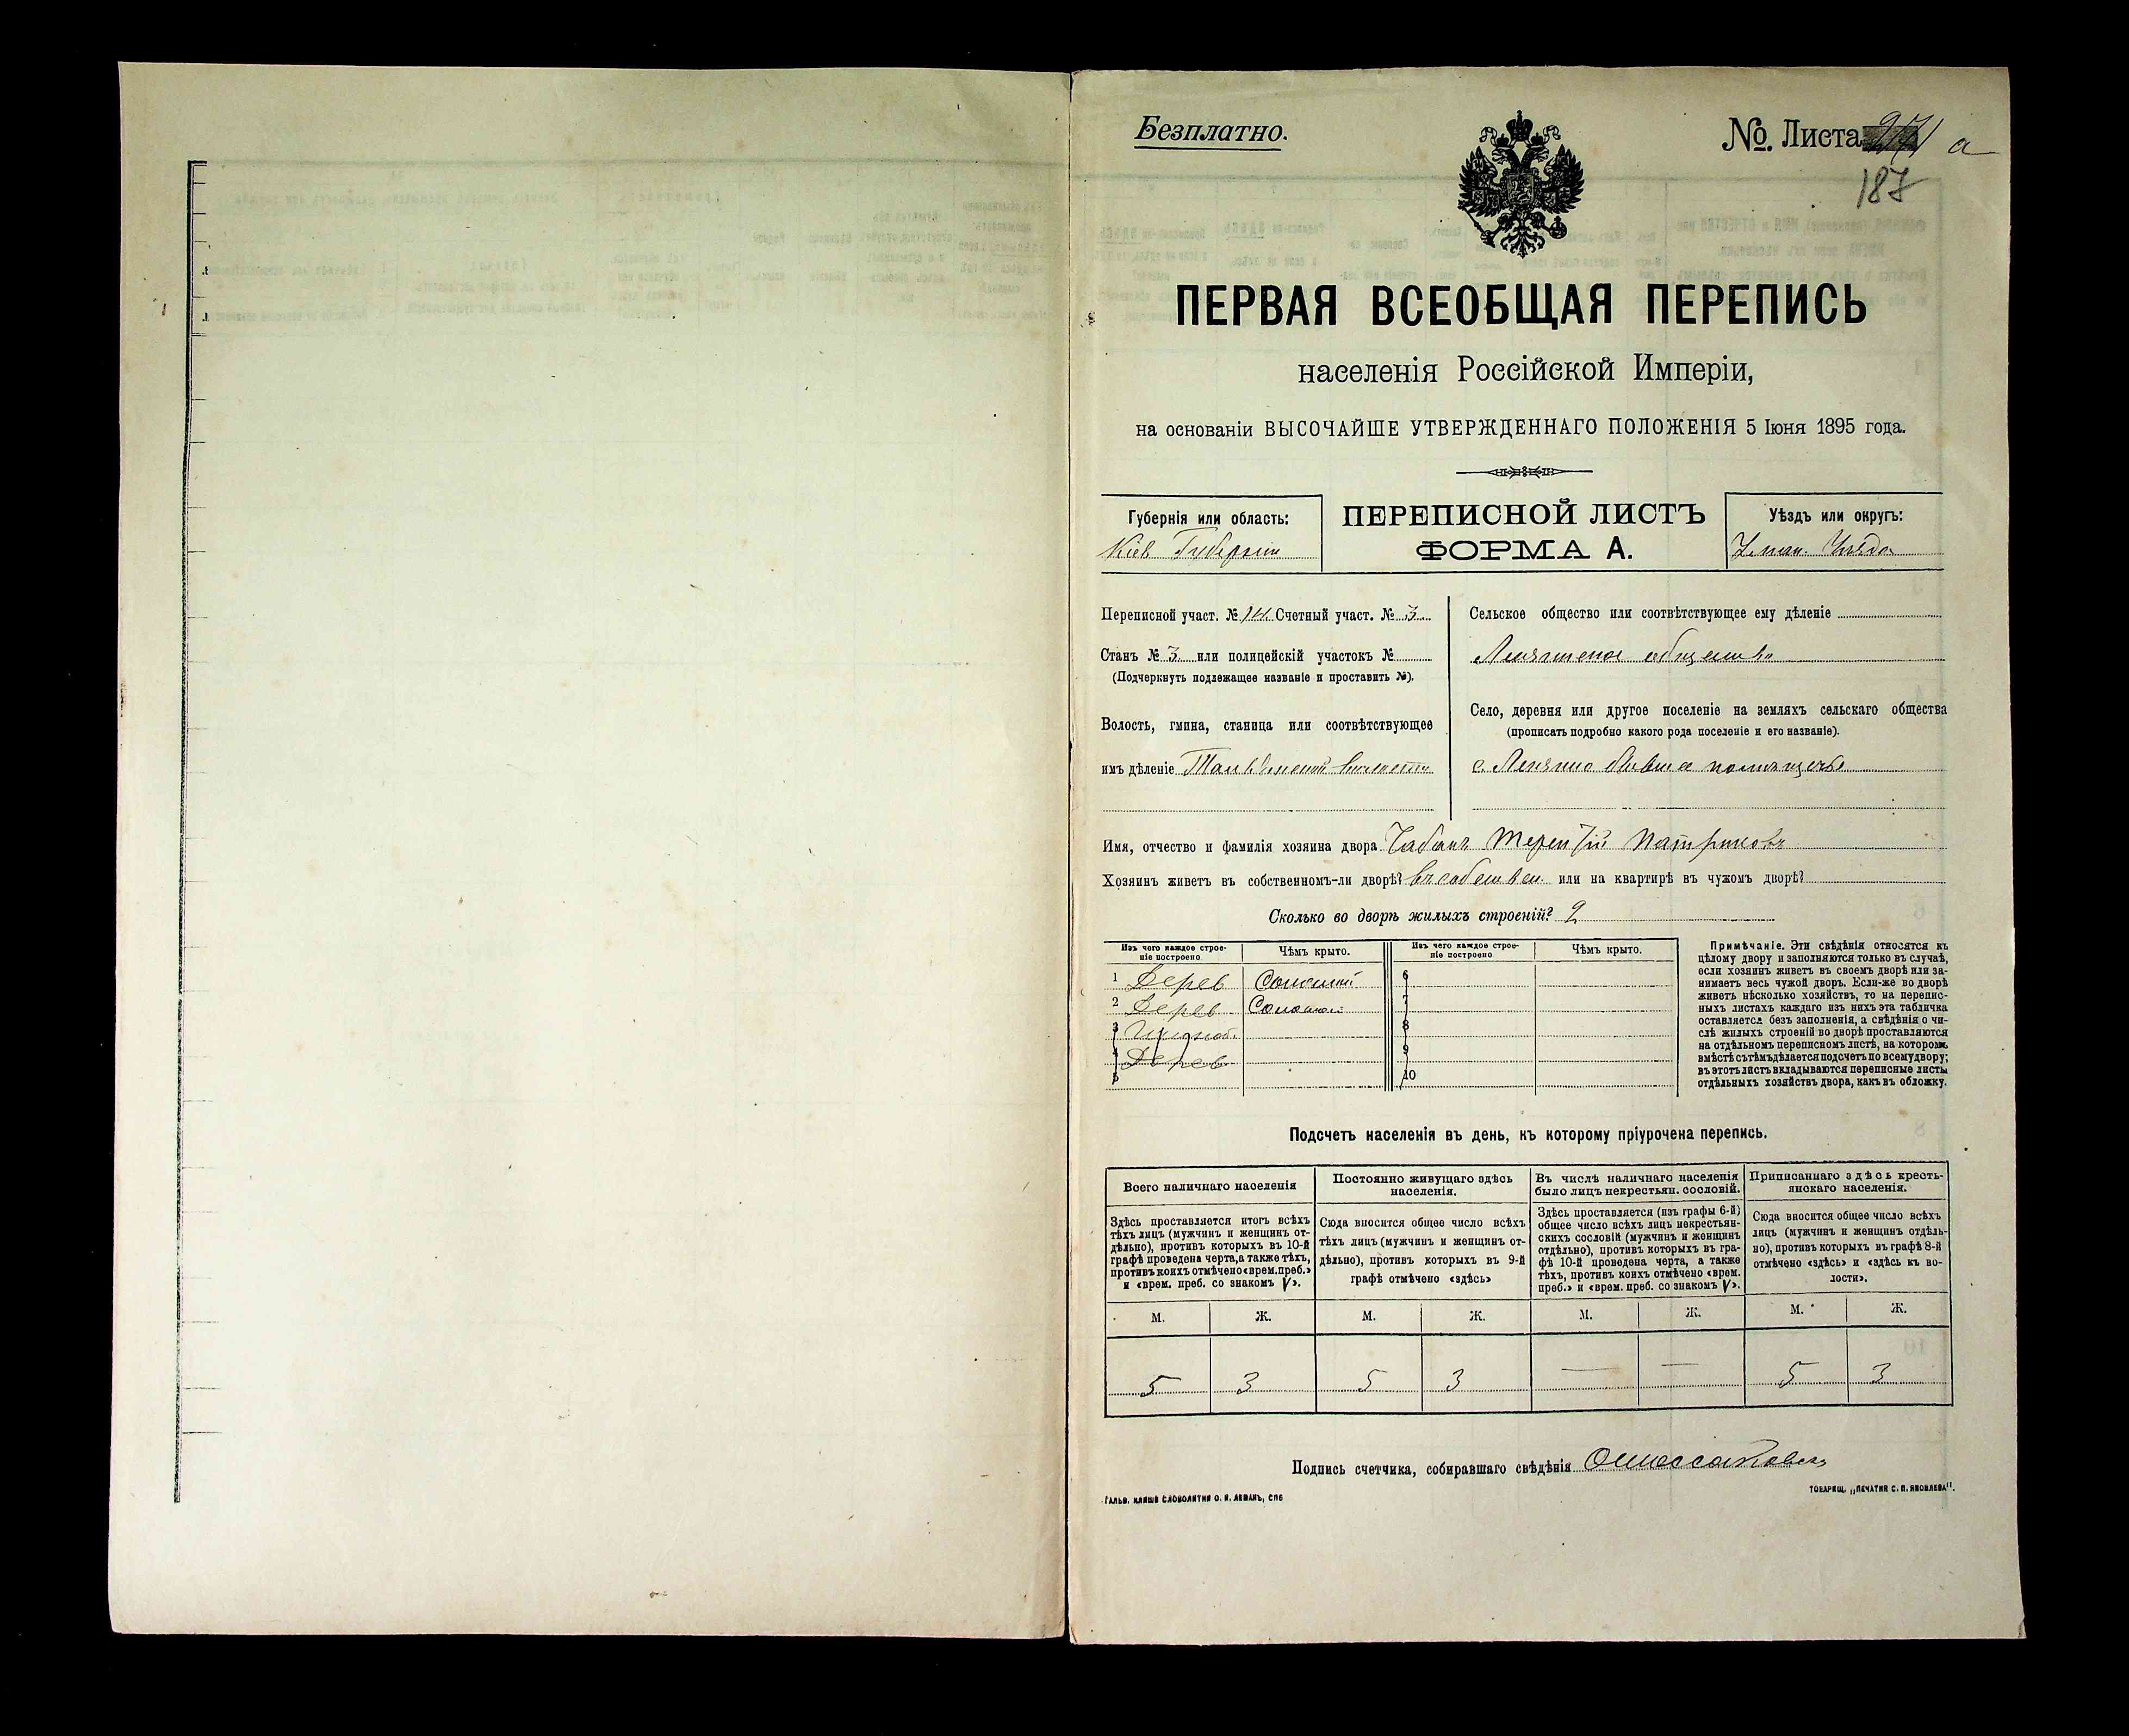 Безплатно.
No. Листа a
187
ПЕРВАЯ ВСЕОБЩАЯ ПЕРЕПИСЬ
населенія Россійской Имперіи,
на основаніи ВЫСОЧАЙШЕ УТВЕРЖДЕННАГО ПОЛОЖЕНІЯ 5 Іюня 1895 года.
Губернія или область:
Кіев Губерніи
ПЕРЕПИСНОЙ ЛИСТЪ
ФОРМА А.
Уѣздъ или округъ:
Уман. Уѣзда
Переписной участ. № 14 Счетный участ. № 3
Станъ № 3 или полицейскій участокъ №
(Подчеркнуть подлежащее названіе и проставить №).
Волость, гмина, станица или соотвѣтствующее
имъ дѣленіе
Сельское общество или соотвѣтствующее ему дѣленіе
общество
Село, деревня или другое поселеніе на земляхъ сельскаго общества
(прописать подробно какого рода поселеніе и его названіе).
с.
Имя, отчество и фамилія хозяина двора Чабанъ Терентій
Хозяинъ живетъ въ собственномъ-ли дворѣ? въ собствен. или на квартирѣ въ чужомъ дворѣ?
Сколько во дворѣ жилыхъ строеній? 2
Изъ чего каждое строе-
ніе построено
Чѣмъ крыто.
Изъ чего каждое строе-
ніе построено
Чѣмъ крыто.
1 Дерев Соломой 6
2 Дерев Соломой 7
3 8
4 Дерев 9
5 10
Примѣчаніе. Эти свѣдѣнія относятся къ
цѣлому двору и заполняются только въ случаѣ,
если хозяинъ живетъ въ своемъ дворѣ или за-
нимаетъ весь чужой дворъ. Если-же во дворѣ
живетъ нѣсколько хозяйствъ, то на перепис-
ныхъ листахъ каждаго изъ нихъ эта табличка
оставляется безъ заполненія, а свѣдѣнія о чи-
слѣ жилыхъ строеній во дворѣ проставляются
на отдѣльномъ переписномъ листѣ, на которомъ
вмѣстѣ съ тѣмъ дѣлается подсчетъ по всему двору;
въ этотъ листъ вкладываются переписные листы
отдѣльныхъ хозяйствъ двора, какъ въ обложку.
Подсчетъ населенія въ день, къ которому пріурочена перепись.
Всего наличнаго населенія
Здѣсь проставляется итогъ всѣхъ
тѣхъ лицъ (мужчинъ и женщинъ от-
дѣльно), противъ которыхъ въ 10-й
графѣ проведена черта, а также тѣхъ,
противъ коихъ отмѣчено «врем. преб.»
и «врем. преб. со знакомъ V».
Постоянно живущаго здѣсь
населенія.
Сюда вносится общее число всѣхъ
тѣхъ лицъ (мужчинъ и женщинъ от-
дѣльно), противъ которыхъ въ 9-й
графѣ отмѣчено «здѣсь»
Въ числѣ наличнаго населенія
было лицъ некрестьян. сословій.
Здѣсь проставляется (изъ графы 6-й)
общее число всѣхъ лицъ некрестьян-
скихъ сословій (мужчинъ и женщинъ
отдѣльно), противъ которыхъ въ гра-
фѣ 10-й проведена черта, а также
тѣхъ, противъ коихъ отмѣчено «врем.
преб.» и «врем. преб. со знакомъ V».
Приписаннаго здѣсь кресть-
янскаго населенія.
Сюда вносится общее число всѣхъ
лицъ (мужчинъ и женщинъ отдѣль-
но), противъ которыхъ въ графѣ 8-й
отмѣчено «здѣсь» и «здѣсь къ во-
лости».
М. Ж. М. Ж. М. Ж. М. Ж.
5 3 5 3 — — 5 3
Подпись счетчика, собиравшаго свѣдѣнія
ГАЛЬВ. КЛИШЕ СЛОВОЛИТНИ О. И. ЛЕМАНЪ, СПБ
ТОВАРИЩ. „ПЕЧАТНЯ С. П. ЯКОВЛЕВА".